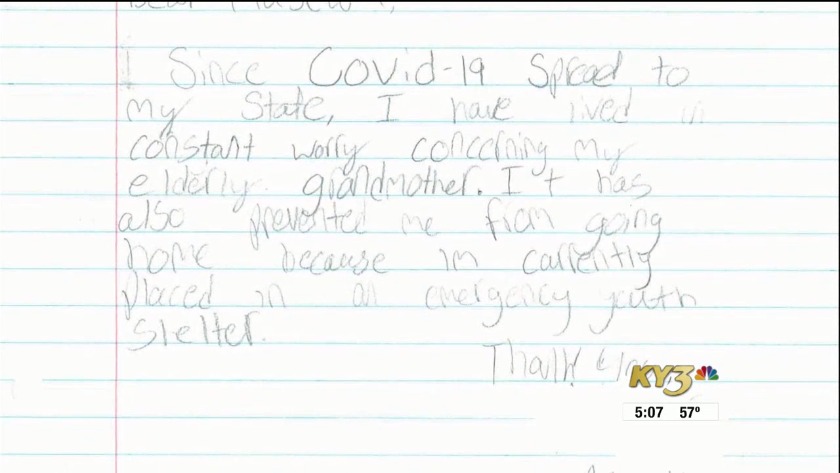 Since Covid-19 Spread to
my State, I have lived in
constant worry concerning my
elderly grandmother. It has
also prevented me from going
home because im currently
placed in an emergency youth
slelter.
Thank
KY3
5:07 57°